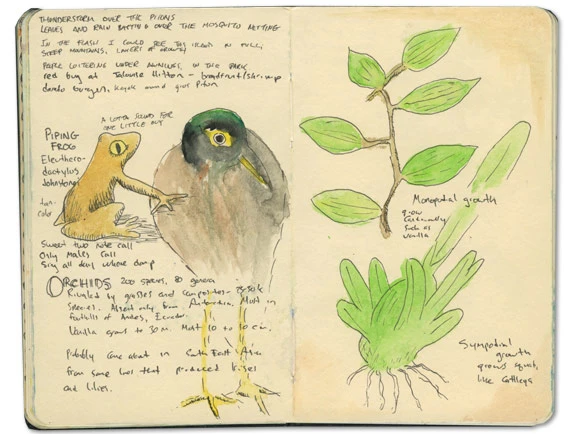 THUNDERSTORM OVER THE PITONS
LEAVES AND RAIN BATTING OVER THE MOSQUITO NETTING
IN THE FLASH I COULD SEE THE ISLAND IN FULL,
STEEP MOUNTAINS, LAYERS OF
PEOPLE LOITERING UNDER AWNINGS IN THE PARK
red bug at Jalousie Hilton - breadfruit/shrimp
burgers, Kayak around Piton
A LOTTA SOUND FOR
ONE LITTLE GUY
PIPING
FROG
Eleuthero-
dactylus
Johnstonei
tan-
color
Sweet two note call
Only males call
Sing all day where damp
ORCHIDS 200 species, 80 genera
Rivaled by grasses and composites - 25-30k
species. Absent only from Antarctica. Most in
foothills of Andes, Ecuador.
Vanilla grows to 30 m. Most 10 to 10 cm.
Probably came about in South East Asia
from same that produced irises
and lilies.
Monopodial growth
grow
vertically
Such as
Vanilla
Sympodial
growth
grows squat,
like Cattleya